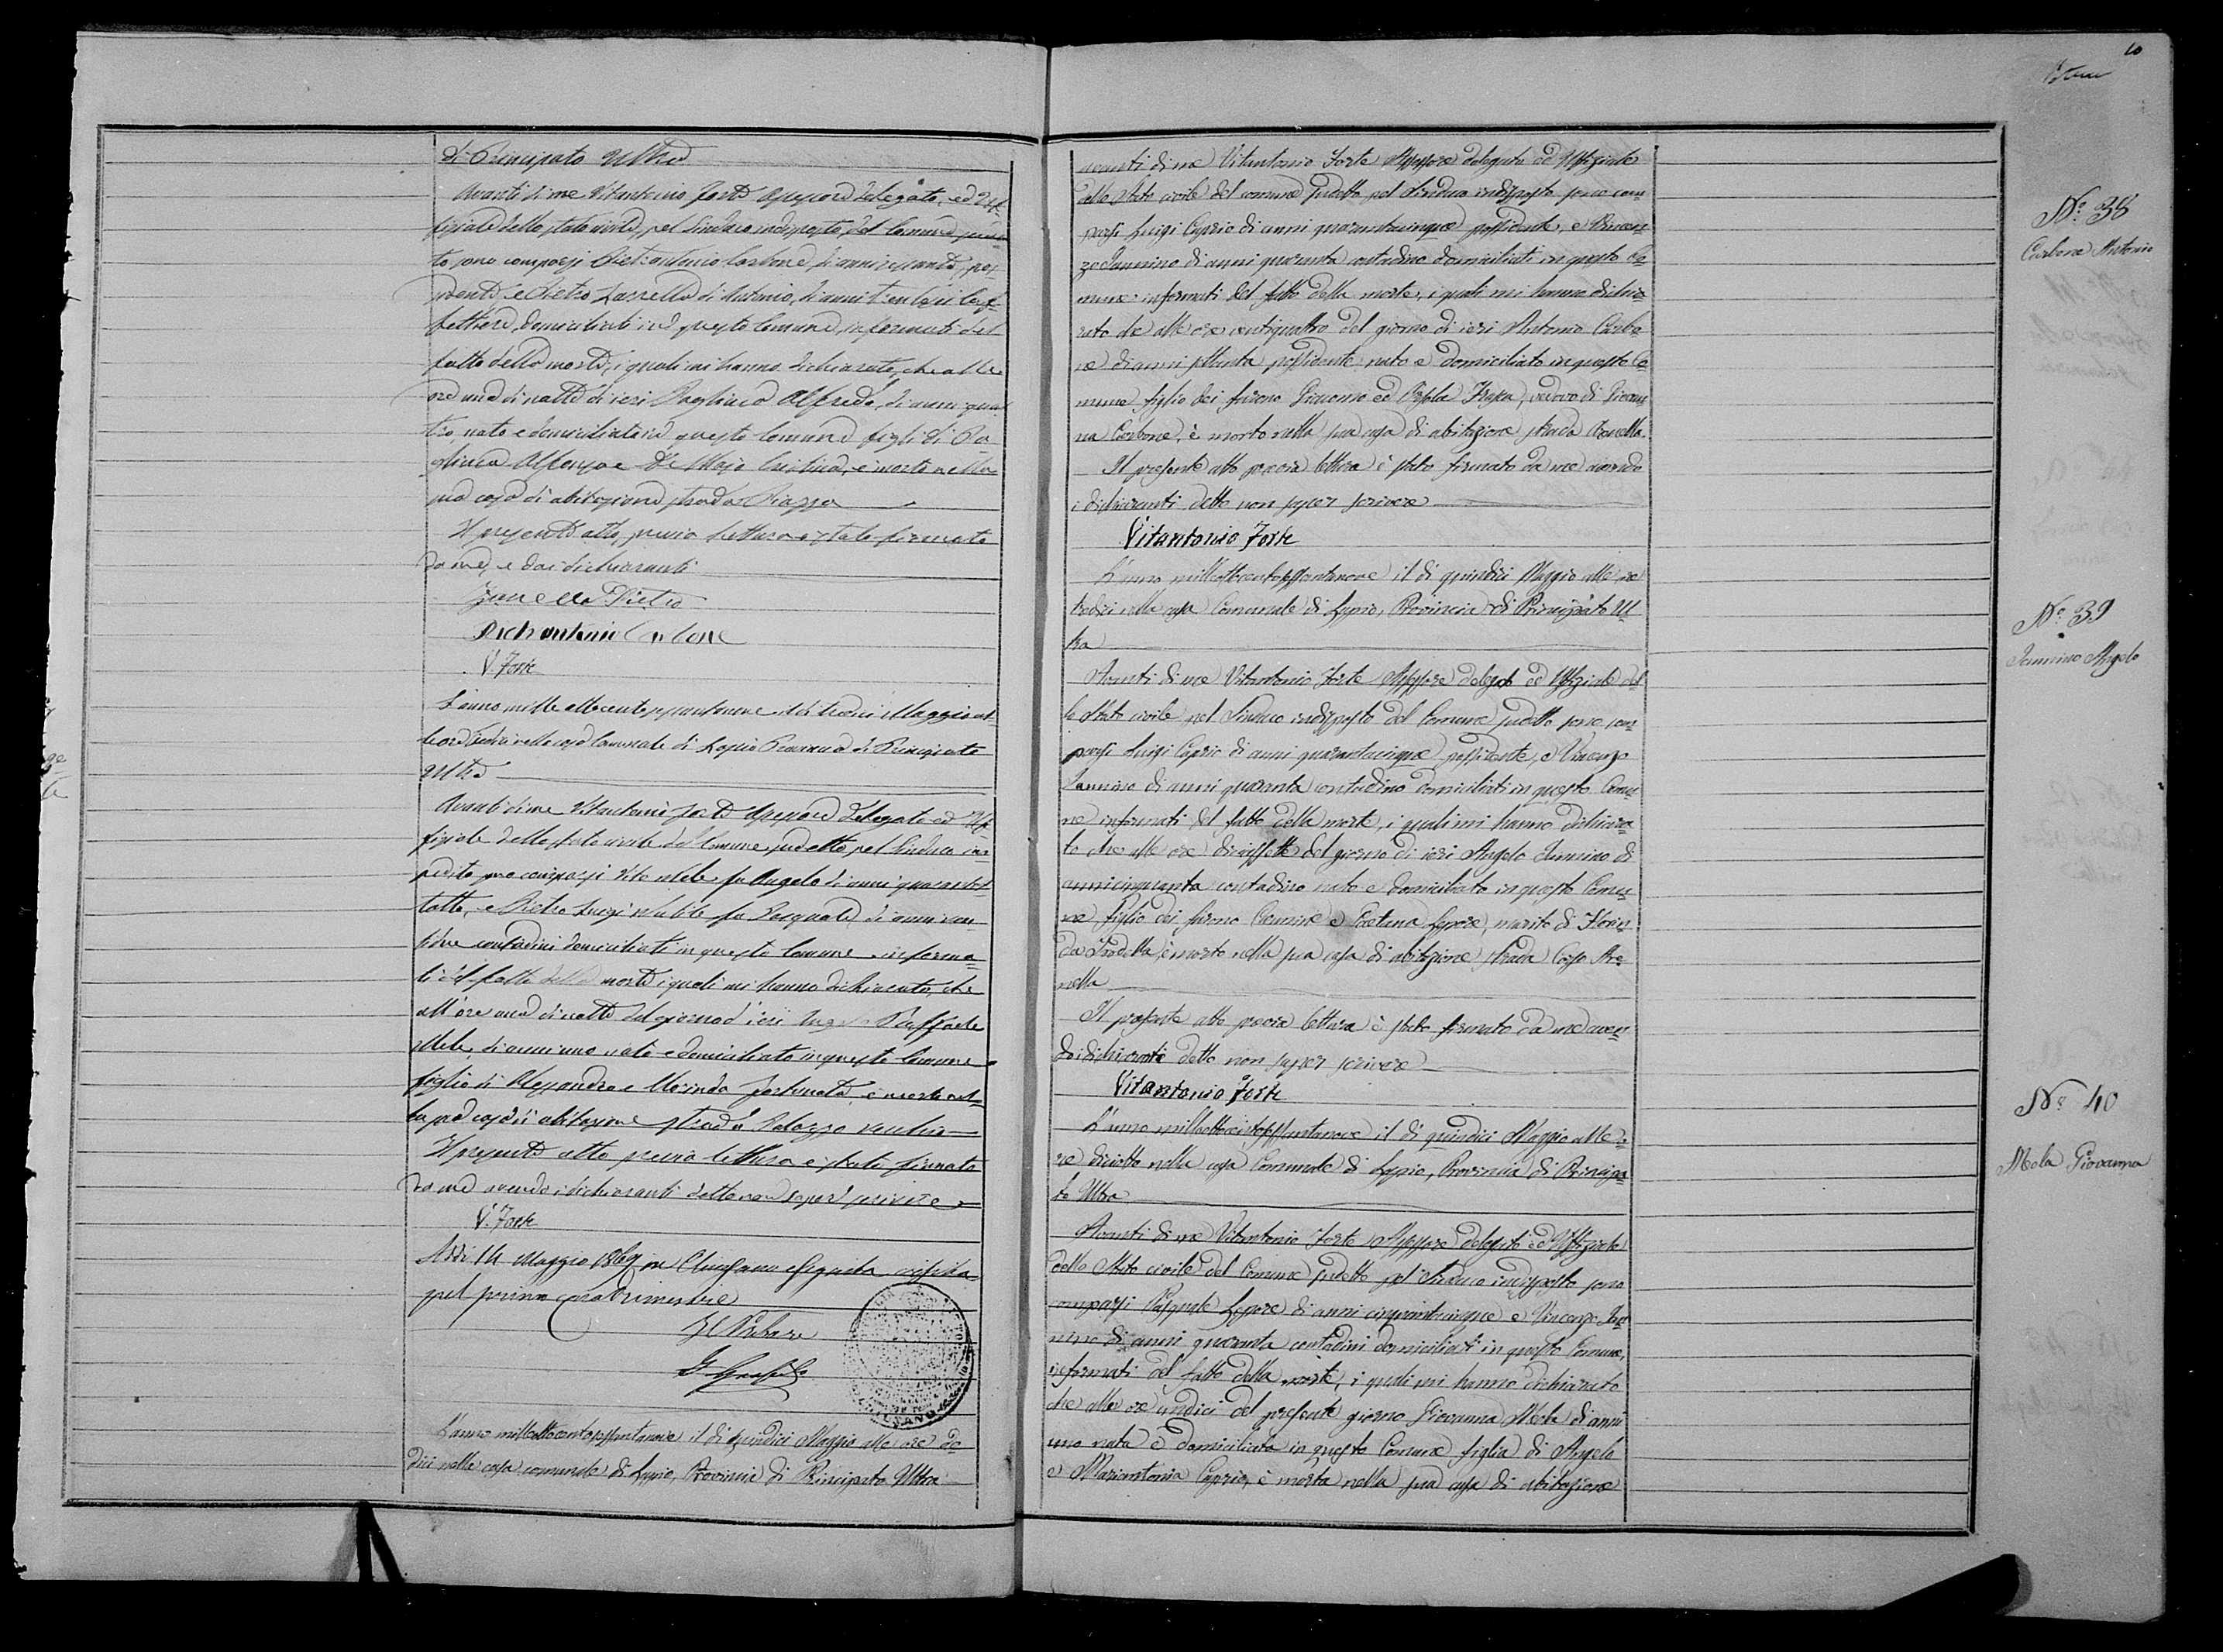 di Principato Ultra
Avanti di me Vitantonio Forte Assessore delegato, ed Uf=
fiziale dello stato civile, pel Sindaco indisposto, del Comune sudet
to sono comparsi Pietrantonio Carbone, di anni sessanta, pos
sidente e Pietro Zarrella di Antonio, di anni trentasei
domiciliati in questo Comune, informati del
fatto della morte, i quali mi hanno dichiarato, che alle
ore una di notte di ieri Pagliuca Alfredo, di anni quat
tro, nato e domiciliato in questo Comune figli di Pa
gliuca Alfonso e De Majo Cristina, è morto nella
sua casa di abitazione strada Piazza
Il presente atto, previa lettura è stato firmato
da me, e dai dichiaranti
Zarrella Pietro
Pietrantonio Carbone
V. Forte
L'anno mille ottocento sessantanove il dì tredici Maggio al
le ore sedici nella casa Comunale di Lapio Provincia di Principato
Ultra
Avanti di me Vitantonio Forte Assessore delegato ed Uf=
fiziale dello stato civile del Comune sudetto, pel Sindaco im
pedito sono comparsi Vito Mele fu Angelo di anni quarantot
totto, e Pietro Luigi fu Pasquale di anni ven
tidue contadini domiciliati in questo Comune informa=
ti del fatto della morte i quali mi hanno dichiarato, che
all'ore una di notte del giorno d'ieri Raffaele
Mele, di anni uno nato e domiciliato in questo Comune
figlio di Alessandro e Clorinda Fortunata, è morto nel=
la sua casa di abitazione strada Palazzo vecchio
Il presente atto previa lettura è stato firmato
da me avendo i dichiaranti detto non saper scrivere
V. Forte
Addì 14 Maggio 1869 in Chiusano eseguita visita
pel primo quadrimestre
Il Pretore
L'anno milleottocentosessantanove il dì quindici Maggio alle ore do
dici nella casa comunale di Lapio, Provincia di Principato Ultra
10
avanti di me Vitantonio Forte Assessore delegato ed Uffiziale
dello Stato civile del comune sudetto pel Sindaco indisposto sono com
parsi Luigi Caprio di anni quarantacinque possidente, e Vincen=
zo Iannino di anni quaranta contadino domiciliati in questo Co
mune informati del fatto della morte, i quali mi hanno dichia
rato che alle ore ventiquattro del giorno di ieri Antonio Carbo
ne di anni settanta possidente nato e domiciliato in questo Co
mune figlio dei furono Giacomo ed Orsola Trapa, vedovo di Giovan
na Carbone, è morto nella sua casa di abitazione strada Arenella.
Il presente atto previa lettura è stato firmato da me avendo
i dichiaranti detto non saper scrivere
Vitantonio Forte
L'anno milleottocentosessantanove il dì quindici Maggio alle ore
tredici nella casa Comunale di Lapio, Provincia di Principato Ul
tra
Avanti di me Vitantonio Forte Assessore delegato ed Uffiziale del
lo Stato civile pel Sindaco indisposto del Comune sudetto sono com
parsi Luigi Caprio di anni quarantacinque possidente, e Vincenzo
Iannino di anni quaranta contadino domiciliati in questo Comu
ne informati del fatto della morte, i quali mi hanno dichiara
to che alle ore diciassette del giorno di ieri Angelo Iannino di
anni cinquanta contadino nato e domiciliato in questo Comu
ne figlio dei furono Carmine e Gaetana Lepore, marito di Florin
da è morto nella sua casa di abitazione strada Corso Are
nella
Il presente atto previa lettura è stato firmato da me aven
do i dichiaranti detto non saper scrivere
Vitantonio Forte
L'anno milleottocentosessantanove il dì quindici Maggio alle o
re diciotto nella casa Comunale di Lapio, Provincia di Principa
to Ultra
Avanti di me Vitantonio Forte Assessore delegato ed Uffiziale
dello Stato civile del Comune sudetto pel Sindaco indisposto sono
comparsi Pasquale Lepore di anni cinquantacinque e Vincenzo Ian
nino di anni quaranta contadini domiciliati in questo Comune,
informati del fatto della morte, i quali mi hanno dichiarato
che alle ore undici del presente giorno Giovanna Mele di anni
uno nata e domiciliata in questo Comune figlia di Angelo
e Mariantonia Caprio, è morta nella sua casa di abitazione
No: 38
Carbone Antonio
No: 39
Iannino Angelo
No: 40
Mela Giovanna